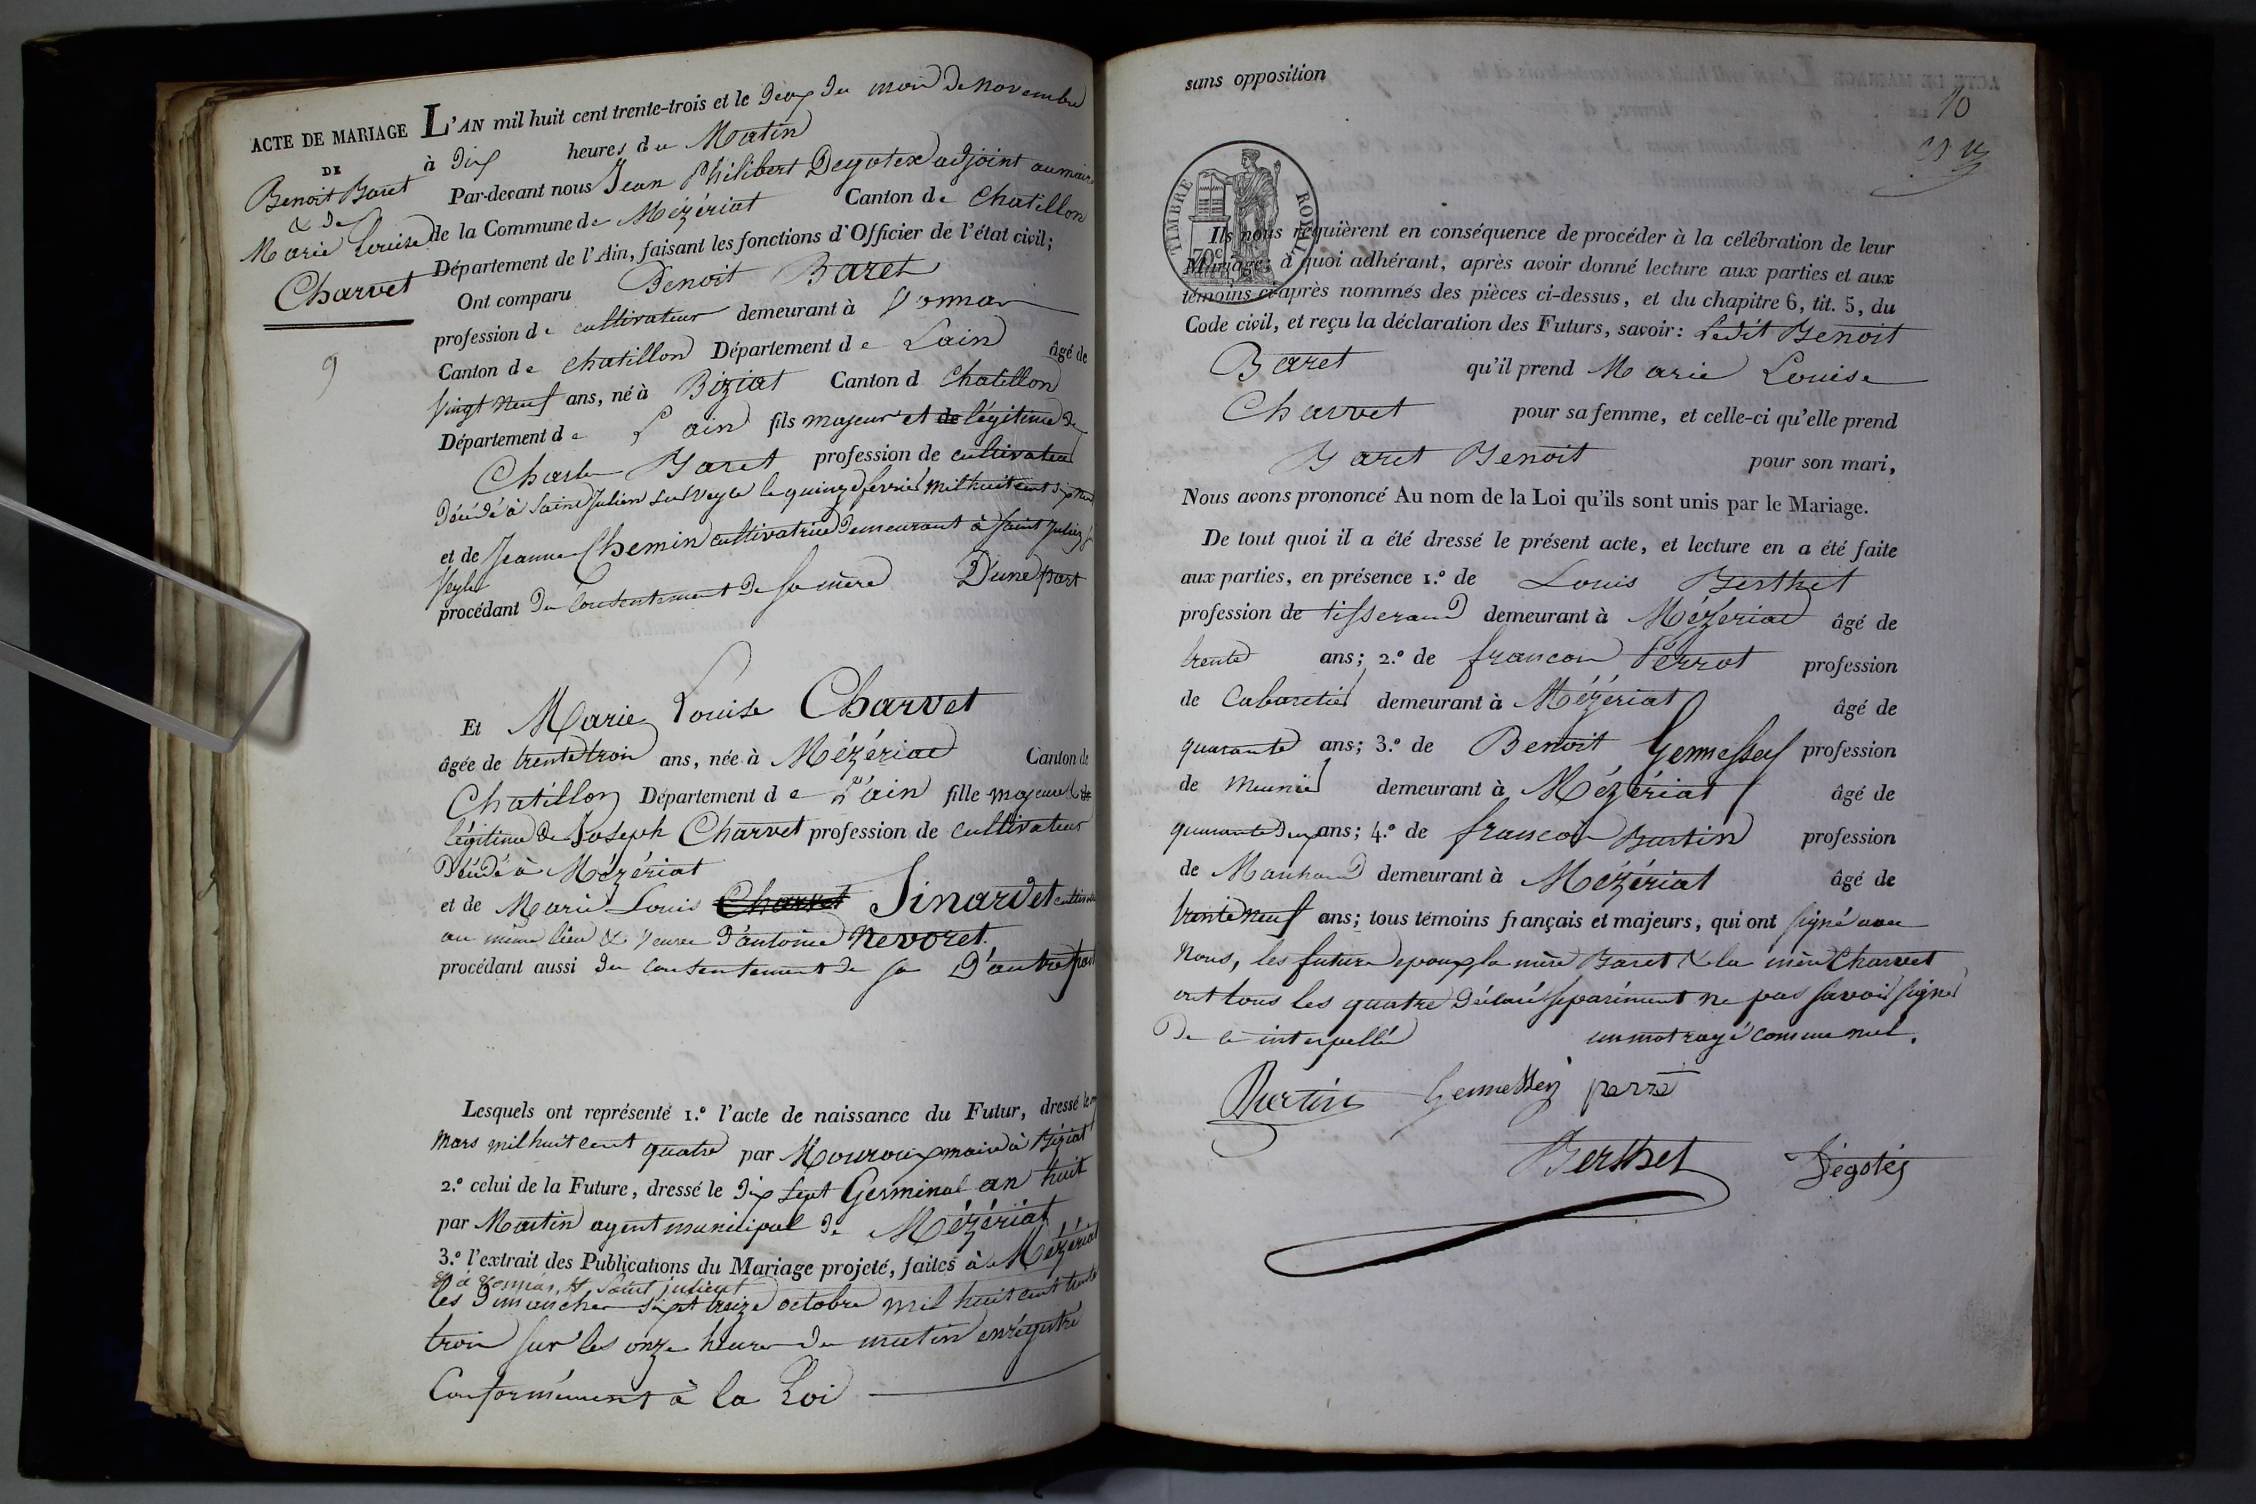 ACTE DE MARIAGE
DE
Benoit Baret
& de
Marie Louise
Charvet
9
L'AN mil huit cent trente-trois et le deux du mois de novembre
à dix heures du Matin
Par-devant nous Jean Philibert Degotex adjoint au maire
de la Commune de Mézériat Canton de Chatillon
Département de l'Ain, faisant les fonctions d'Officier de l'état civil;
Ont comparu Benoit Baret
profession de cultivateur demeurant à Vonnas
Canton de chatillon Département de Lain âgé de
vingt neuf ans, né à Biziat Canton d chatillon
Département de L'ain fils majeur et de légitime de
Charle Baret profession de cultivateur
décédé à Saint Julien sur Veyle le quinze fevrier mil huit cent dix neuf
et de Jeanne Chemin cultivatrice demeurant à Saint Julien sur
Veyle
procédant du consentement de sa mère D'une part
Et Marie Louise Charvet
âgée de trente trois ans, née à Mézériat Canton de
Chatillon Département de L'ain fille majeure &
légitime de Joseph Charvet profession de cultivateur
Décédé à Mézériat
et de Marie Louis Charvet Sinardet
au même lieu & veuve d'antoine Nevoret
procédant aussi du consentement de sa D'autre part
Lesquels ont représenté 1.º l'acte de naissance du Futur, dressé le
Mars mil huit cent quatre par Mouroux maire à Biziat
2.º celui de la Future, dressé le dix sept Germinal an huit
par Martin agent municipal de Mézériat
3.º l'extrait des Publications du Mariage projeté, faites à Mézériat
et à Vonnas, & Saint julient
les dimanches six et treize octobre mil huit cent trente
trois sur les onze heures du matin enrégistré
Conformément à la Loi
sans opposition
10
TIMBRE ROYAL
70c
Ils nous requièrent en conséquence de procéder à la célébration de leur
Mariage; à quoi adhérant, après avoir donné lecture aux parties et aux
témoins ci-après nommés des pièces ci-dessus, et du chapitre 6, tit. 5, du
Code civil, et reçu la déclaration des Futurs, savoir: Ledit Benoit
Baret qu'il prend Marie Louise
Charvet pour sa femme, et celle-ci qu'elle prend
Baret Benoit pour son mari,
Nous avons prononcé Au nom de la Loi qu'ils sont unis par le Mariage.
De tout quoi il a été dressé le présent acte, et lecture en a été faite
aux parties, en présence 1.º de Louis Berthet
profession de tisserand demeurant à Mézériat âgé de
trente ans; 2.º de francois Perrot profession
de Cabaretier demeurant à Mézériat âgé de
quarante ans; 3.º de Benoit Gennessey profession
de Meunier demeurant à Mézériat âgé de
quarante deux ans; 4.º de francois Burtin profession
de Marchand demeurant à Mézériat âgé de
trente neuf ans; tous témoins français et majeurs, qui ont signé avec
Nous, les futurs epoux la mère Baret & la mère Charvet
ont tous les quatre déclaré séparément ne pas savoir signer
de ce interpellé un mot rayé comme nul.
Burtin Gennessey perre
Berthet Dégotés